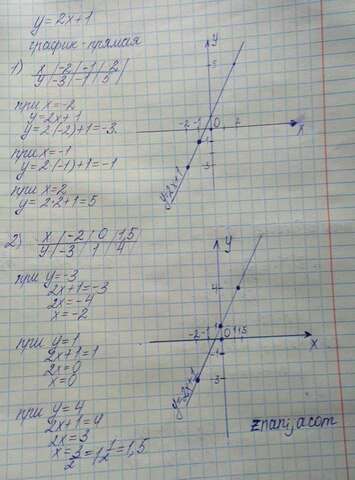 y = 2x+1
график-прямая
1) x | -2 | -1 | 2
y | -3 | -1 | 5
при x = -2
y = 2x+1
y = 2(-2)+1 = -3
при x = -1
y = 2(-1)+1 = -1
при x = 2
y = 2·2+1 = 5
y
5
-2 -1 0 2
x
-1
-3
y=2x+1
2) x | -2 | 0 | 1,5
y | -3 | 1 | 4
при y = -3
2x+1 = -3
2x = -4
x = -2
при y = 1
2x+1 = 1
2x = 0
x = 0
при y = 4
2x+1 = 4
2x = 3
x = 3/2 = 1 1/2 = 1,5
y
4
1
-2 -1 0 1 1,5
x
-1
-3
y=2x+1
znanija.com